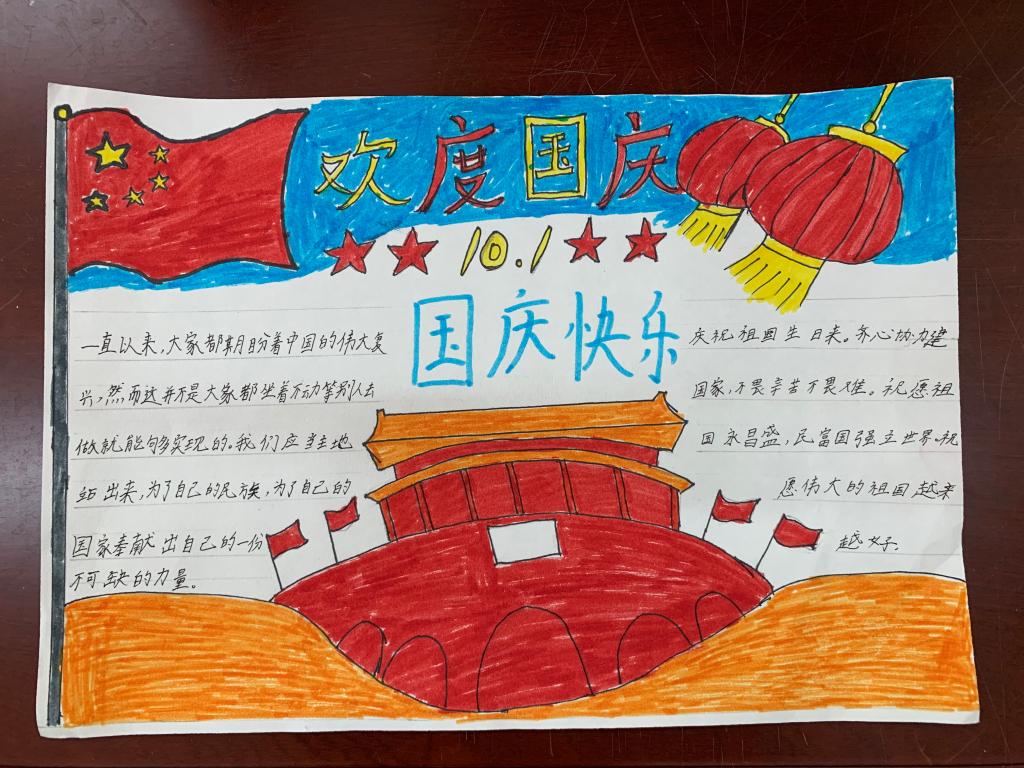 欢度国庆
10.1
国庆快乐
一直以来，大家都期盼着中国的伟大复
兴，然而这并不是大家都坐着不动等别人去
做就能够实现的。我们应当主地
站出来，为了自己的民族，为了自己的
国家奉献出自己的一份
不可缺的力量。
庆祝祖国生日来。齐心协力建
国家，不畏辛苦不畏难。祝愿祖
国永昌盛，民富国强立世界。祝
愿伟大的祖国越来
越好.